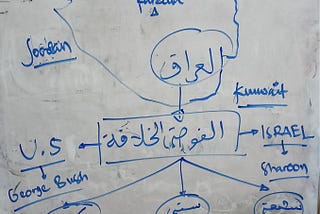 Joodan
العراق
Kuwait
U.S
الفوضى الخلاقة
ISRAEL
George Bush
Sharoon
سني
شيعة